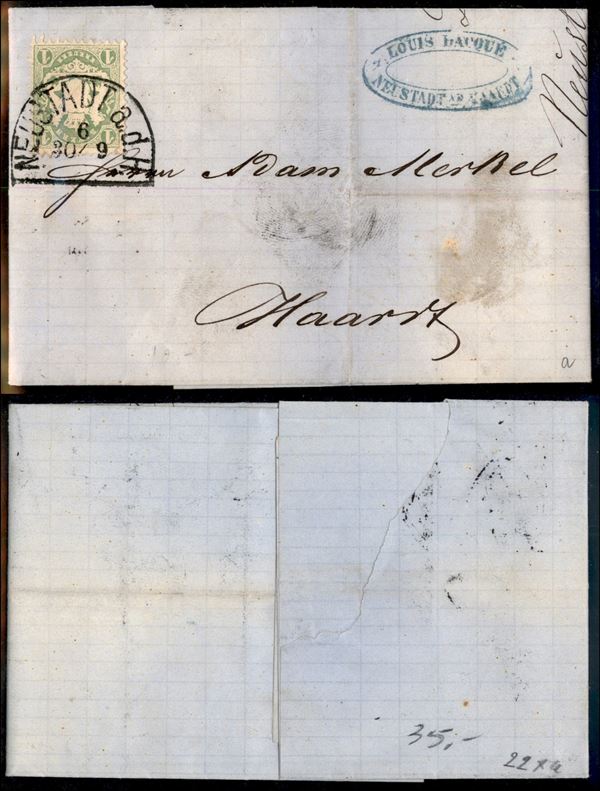 1 1
NEUSTADT a.d.H
6
30 9
LOUIS LACQUÉ
NEUSTADT
Herrn Adam Merkel
Haardt
a
35,-
22xa